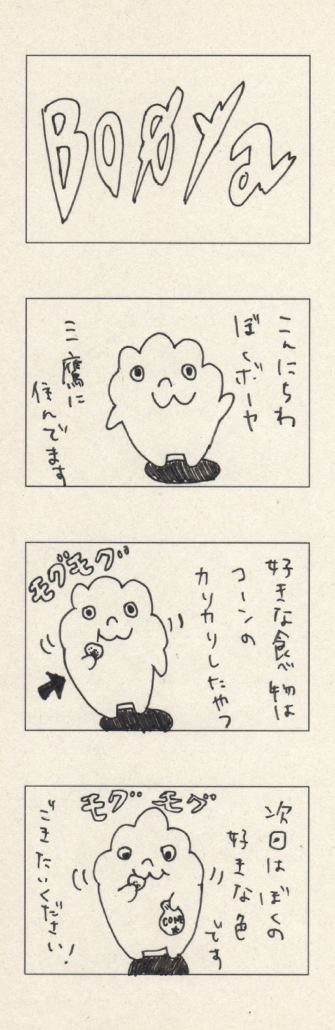 BOØYa
こんにちわ
ぼくボーヤ
三鷹に
住んでます
好きな食べ物は
コーンの
カリカリしたやつ
モグモグ
モグモグ
次回はぼくの
好きな色
です
CORN
ごきたいください!